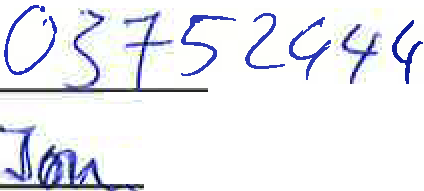 03752444
Jon